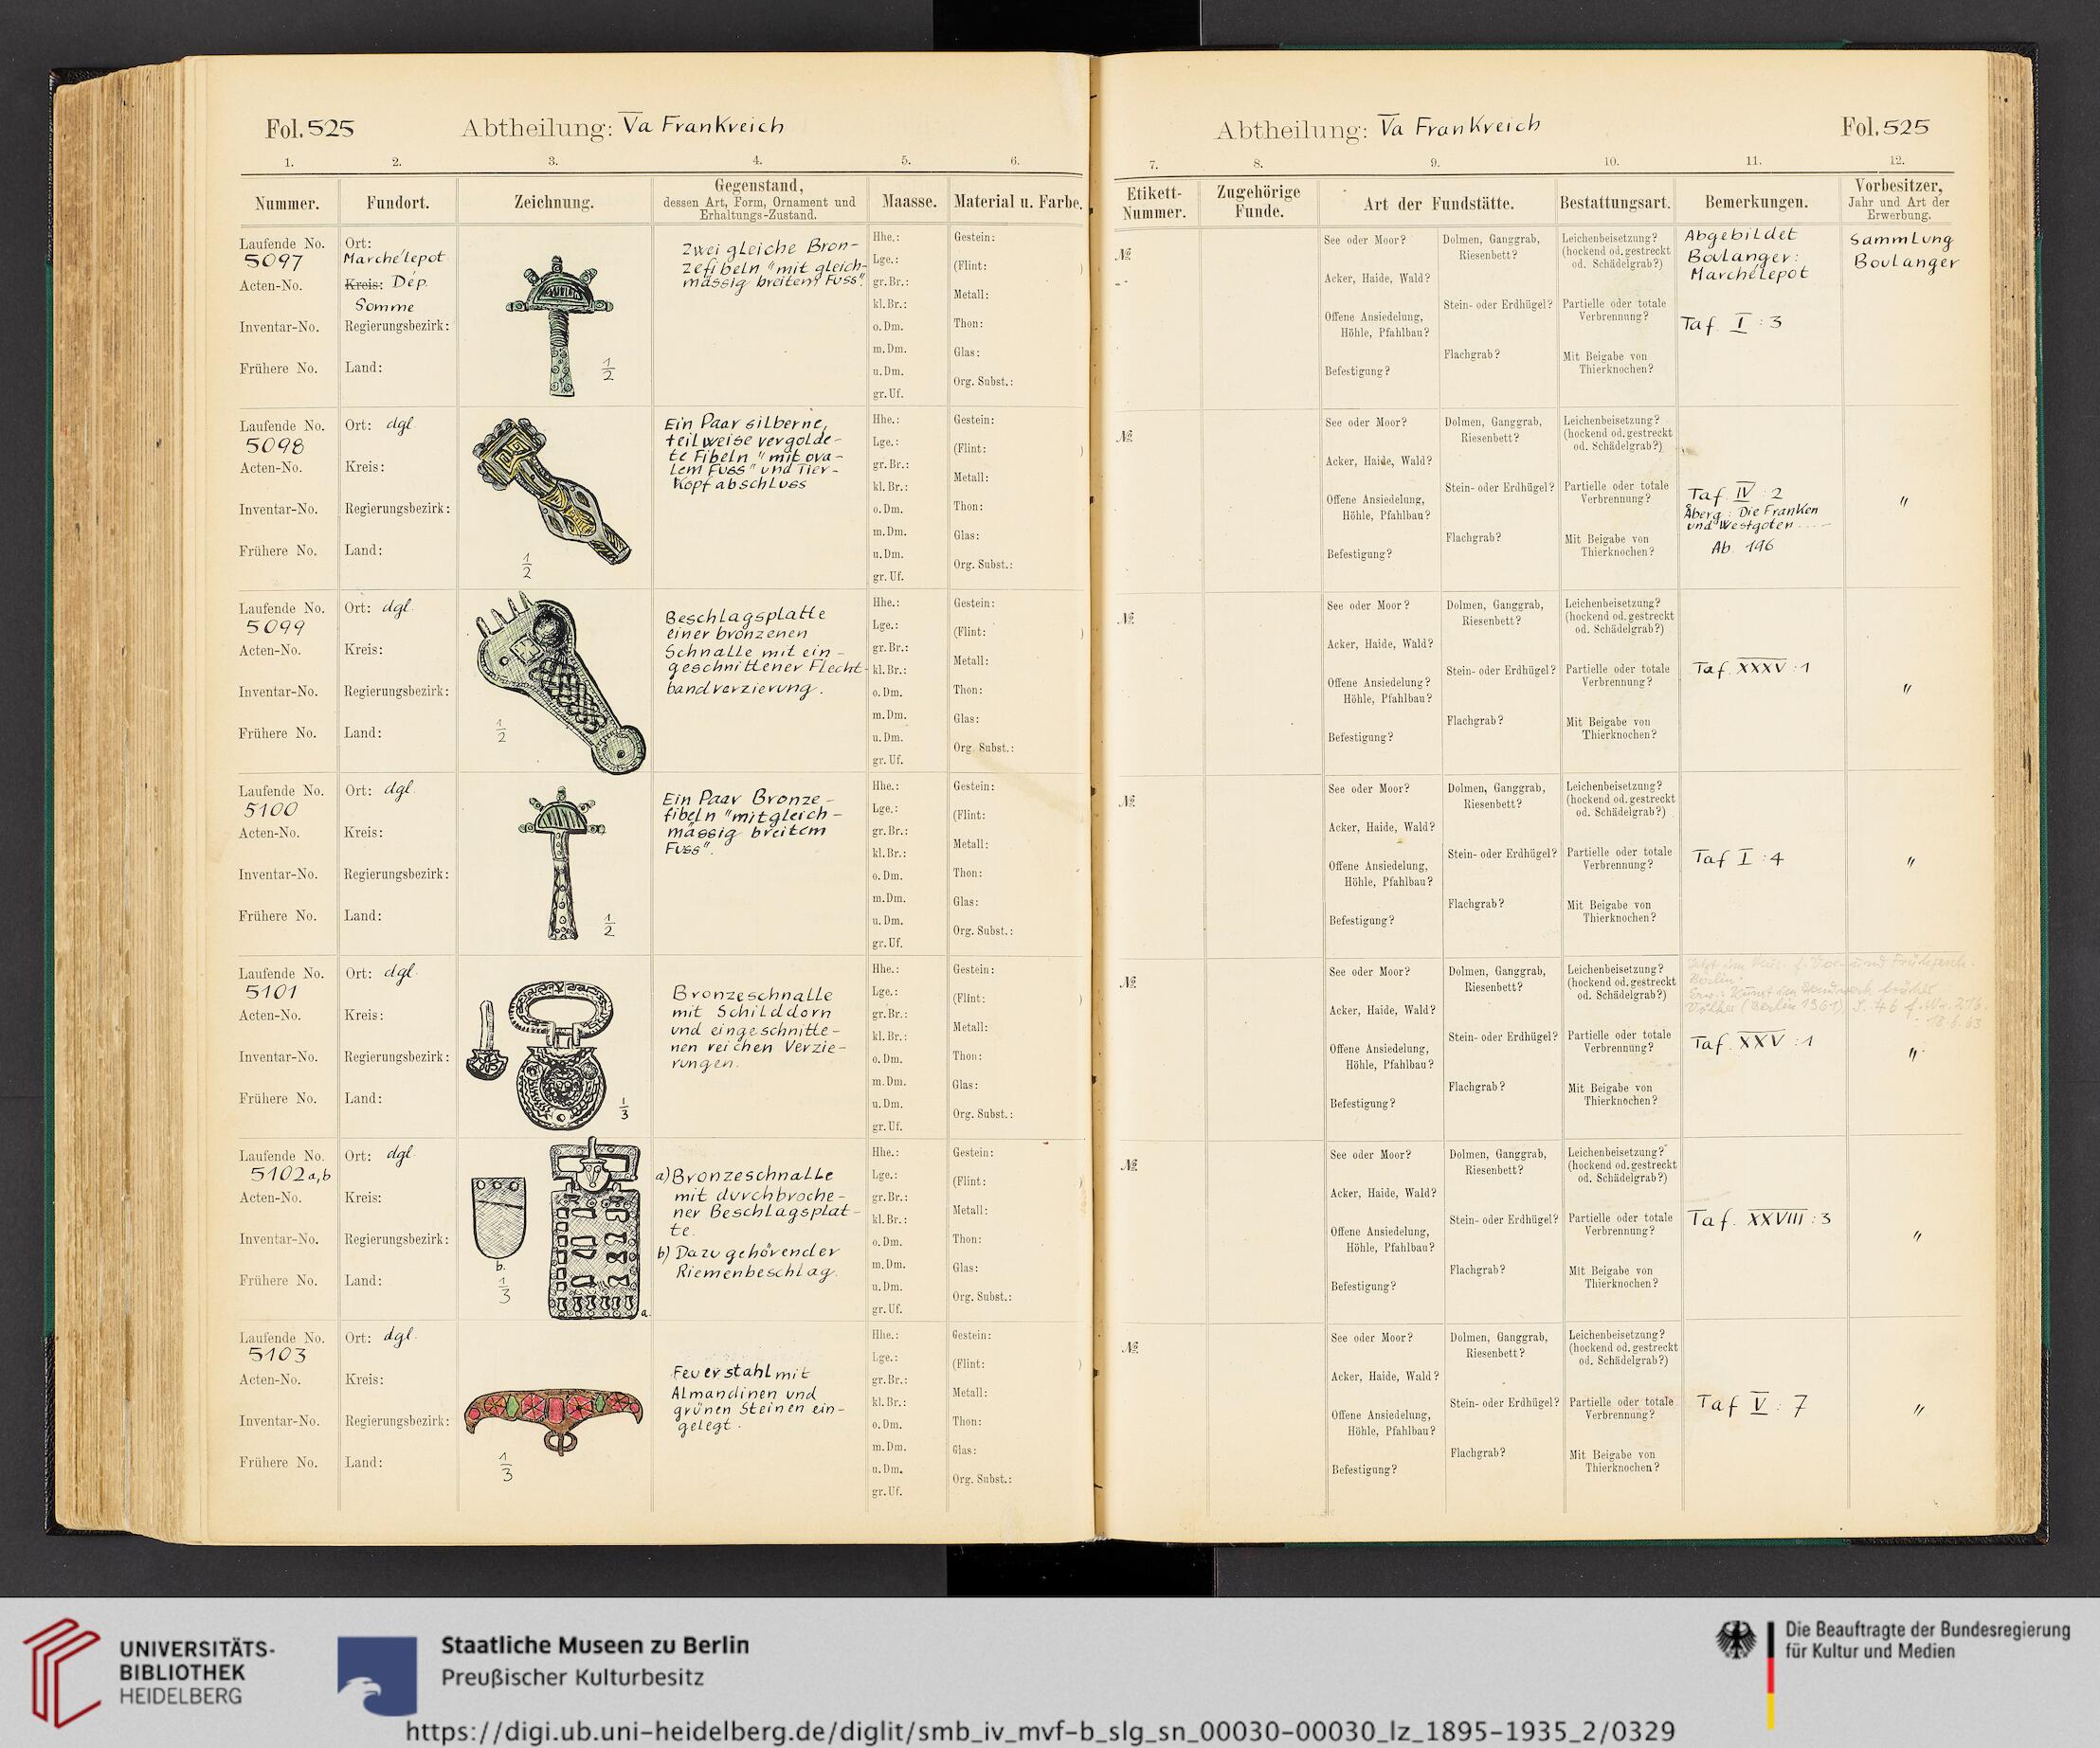 Fol. 525
Abtheilung: Va Frankreich
1. 2. 3. 4. 5. 6.
Nummer.
Fundort.
Zeichnung.
Gegenstand,
dessen Art, Form, Ornament und
Erhaltungs-Zustand.
Maasse.
Material u. Farbe.
Laufende No.
5097
Acten-No.
Inventar-No.
Frühere No.
Ort:
Marchélepot
Kreis: Dép.
Somme
Regierungsbezirk:
Land:
1/2
Zwei gleiche Bron-
zefibeln "mit gleich-
mässig breitem Fuss".
Hhe.:
Lge.:
gr. Br.:
kl. Br.:
o. Dm.
m. Dm.
u. Dm.
gr. Uf.
Gestein:
(Flint: )
Metall:
Thon:
Glas:
Org. Subst.:
Laufende No.
5098
Acten-No.
Inventar-No.
Frühere No.
Ort: dgl.
Kreis:
Regierungsbezirk:
Land:
1/2
Ein Paar silberne,
teilweise vergolde-
te Fibeln "mit ova-
lem Fuss" und Tier-
Kopfabschluss
Hhe.:
Lge.:
gr. Br.:
kl. Br.:
o. Dm.
m. Dm.
u. Dm.
gr. Uf.
Gestein:
(Flint: )
Metall:
Thon:
Glas:
Org. Subst.:
Laufende No.
5099
Acten-No.
Inventar-No.
Frühere No.
Ort: dgl.
Kreis:
Regierungsbezirk:
Land:
1/2
Beschlagsplatte
einer bronzenen
Schnalle mit ein-
geschnittener Flecht-
bandverzierung.
Hhe.:
Lge.:
gr. Br.:
kl. Br.:
o. Dm.
m. Dm.
u. Dm.
gr. Uf.
Gestein:
(Flint: )
Metall:
Thon:
Glas:
Org. Subst.:
Laufende No.
5100
Acten-No.
Inventar-No.
Frühere No.
Ort: dgl.
Kreis:
Regierungsbezirk:
Land:
1/2
Ein Paar Bronze-
fibeln "mit gleich-
mässig breitem
Fuss".
Hhe.:
Lge.:
gr. Br.:
kl. Br.:
o. Dm.
m. Dm.
u. Dm.
gr. Uf.
Gestein:
(Flint:
Metall:
Thon:
Glas:
Org. Subst.:
Laufende No.
5101
Acten-No.
Inventar-No.
Frühere No.
Ort: dgl.
Kreis:
Regierungsbezirk:
Land:
1/3
Bronzeschnalle
mit Schilddorn
und eingeschnitte-
nen reichen Verzie-
rungen.
Hhe.:
Lge.:
gr. Br.:
kl. Br.:
o. Dm.
m. Dm.
u. Dm.
gr. Uf.
Gestein:
(Flint: )
Metall:
Thon:
Glas:
Org. Subst.:
Laufende No.
5102 a,b
Acten-No.
Inventar-No.
Frühere No.
Ort: dgl.
Kreis:
Regierungsbezirk:
Land:
b.
1/3
a.
a) Bronzeschnalle
mit durchbroche-
ner Beschlagsplat-
te.
b) Dazu gehörender
Riemenbeschlag.
Hhe.:
Lge.:
gr. Br.:
kl. Br.:
o. Dm.
m. Dm.
u. Dm.
gr. Uf.
Gestein:
(Flint: )
Metall:
Thon:
Glas:
Org. Subst.:
Laufende No.
5103
Acten-No.
Inventar-No.
Frühere No.
Ort: dgl.
Kreis:
Regierungsbezirk:
Land:
1/3
Feuerstahl mit
Almandinen und
grünen Steinen ein-
gelegt.
Hhe.:
Lge.:
gr. Br.:
kl. Br.:
o. Dm.
m. Dm.
u. Dm.
gr. Uf.
Gestein:
(Flint: )
Metall:
Thon:
Glas:
Org. Subst.:
Abtheilung: Va Frankreich
Fol. 525
7. 8. 9. 10. 11. 12.
Etikett-
Nummer.
Zugehörige
Funde.
Art der Fundstätte.
Bestattungsart.
Bemerkungen.
Vorbesitzer,
Jahr und Art der
Erwerbung.
№
See oder Moor?
Acker, Haide, Wald?
Offene Ansiedelung,
Höhle, Pfahlbau?
Befestigung?
Dolmen, Ganggrab,
Riesenbett?
Stein- oder Erdhügel?
Flachgrab?
Leichenbeisetzung?
(hockend od. gestreckt
od. Schädelgrab?)
Partielle oder totale
Verbrennung?
Mit Beigabe von
Thierknochen?
Abgebildet
Boulanger:
Marchélepot
Taf. I : 3
Sammlung
Boulanger
№
See oder Moor?
Acker, Haide, Wald?
Offene Ansiedelung,
Höhle, Pfahlbau?
Befestigung?
Dolmen, Ganggrab,
Riesenbett?
Stein- oder Erdhügel?
Flachgrab?
Leichenbeisetzung?
(hockend od. gestreckt
od. Schädelgrab?)
Partielle oder totale
Verbrennung?
Mit Beigabe von
Thierknochen?
Taf. IV : 2
Åberg: Die Franken
und Westgoten ...-
Ab. 196
"
№
See oder Moor?
Acker, Haide, Wald?
Offene Ansiedelung?
Höhle, Pfahlbau?
Befestigung?
Dolmen, Ganggrab,
Riesenbett?
Stein- oder Erdhügel?
Flachgrab?
Leichenbeisetzung?
(hockend od. gestreckt
od. Schädelgrab?)
Partielle oder totale
Verbrennung?
Mit Beigabe von
Thierknochen?
Taf. XXXV : 1
"
№
See oder Moor?
Acker, Haide, Wald?
Offene Ansiedelung,
Höhle, Pfahlbau?
Befestigung?
Dolmen, Ganggrab,
Riesenbett?
Stein- oder Erdhügel?
Flachgrab?
Leichenbeisetzung?
(hockend od. gestreckt
od. Schädelgrab?)
Partielle oder totale
Verbrennung?
Mit Beigabe von
Thierknochen?
Taf I : 4
"
№
See oder Moor?
Acker, Haide, Wald?
Offene Ansiedelung,
Höhle, Pfahlbau?
Befestigung?
Dolmen, Ganggrab,
Riesenbett?
Stein- oder Erdhügel?
Flachgrab?
Leichenbeisetzung?
(hockend od. gestreckt
od. Schädelgrab?)
Partielle oder totale
Verbrennung?
Mit Beigabe von
Thierknochen?
f. Vor- und Frühgesch.
Berlin
(Berlin 1961), S. 46
Taf. XXV : 1
"
№
See oder Moor?
Acker, Haide, Wald?
Offene Ansiedelung,
Höhle, Pfahlbau?
Befestigung?
Dolmen, Ganggrab,
Riesenbett?
Stein- oder Erdhügel?
Flachgrab?
Leichenbeisetzung?
(hockend od. gestreckt
od. Schädelgrab?)
Partielle oder totale
Verbrennung?
Mit Beigabe von
Thierknochen?
Taf. XXVIII : 3
"
№
See oder Moor?
Acker, Haide, Wald?
Offene Ansiedelung,
Höhle, Pfahlbau?
Befestigung?
Dolmen, Ganggrab,
Riesenbett?
Stein- oder Erdhügel?
Flachgrab?
Leichenbeisetzung?
(hockend od. gestreckt
od. Schädelgrab?)
Partielle oder totale
Verbrennung?
Mit Beigabe von
Thierknochen?
Taf V : 7
"
UNIVERSITÄTS-
BIBLIOTHEK
HEIDELBERG
Staatliche Museen zu Berlin
Preußischer Kulturbesitz
Die Beauftragte der Bundesregierung
für Kultur und Medien
https://digi.ub.uni-heidelberg.de/diglit/smb_iv_mvf-b_slg_sn_00030-00030_lz_1895-1935_2/0329